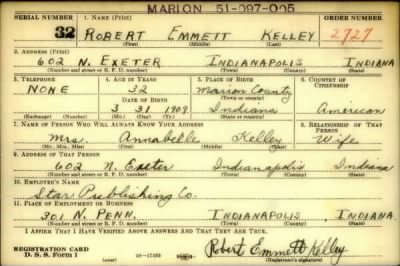 MARION 51-097-005
SERIAL NUMBER 1. NAME (Print) ORDER NUMBER
32 ROBERT EMMETT KELLEY 2727
(First) (Middle) (Last)
2. ADDRESS (Print)
602 N. EXETER INDIANAPOLIS INDIANA
(Number and street or R. F. D. number) (Town) (County) (State)
3. TELEPHONE 4. AGE IN YEARS 5. PLACE OF BIRTH 6. COUNTRY OF CITIZENSHIP
NONE 32 Marion County
DATE OF BIRTH (Town or county)
3 31 1909 Indiana American
(Exchange) (Number) (Mo.) (Day) (Yr.) (State or country)
7. NAME OF PERSON WHO WILL ALWAYS KNOW YOUR ADDRESS 8. RELATIONSHIP OF THAT PERSON
Mrs. Annabelle Kelley Wife
(Mr., Mrs., Miss) (First) (Middle) (Last)
9. ADDRESS OF THAT PERSON
602 N. Exeter Indianapolis Indiana
(Number and street or R. F. D. number) (Town) (County) (State)
10. EMPLOYER'S NAME
Star Publishing Co.
11. PLACE OF EMPLOYMENT OR BUSINESS
301 N. PENN. INDIANAPOLIS INDIANA
(Number and street or R. F. D. number) (Town) (County) (State)
I AFFIRM THAT I HAVE VERIFIED ABOVE ANSWERS AND THAT THEY ARE TRUE.
REGISTRATION CARD
D. S. S. Form 1 Robert Emmett Kelley
(Registrant's signature)